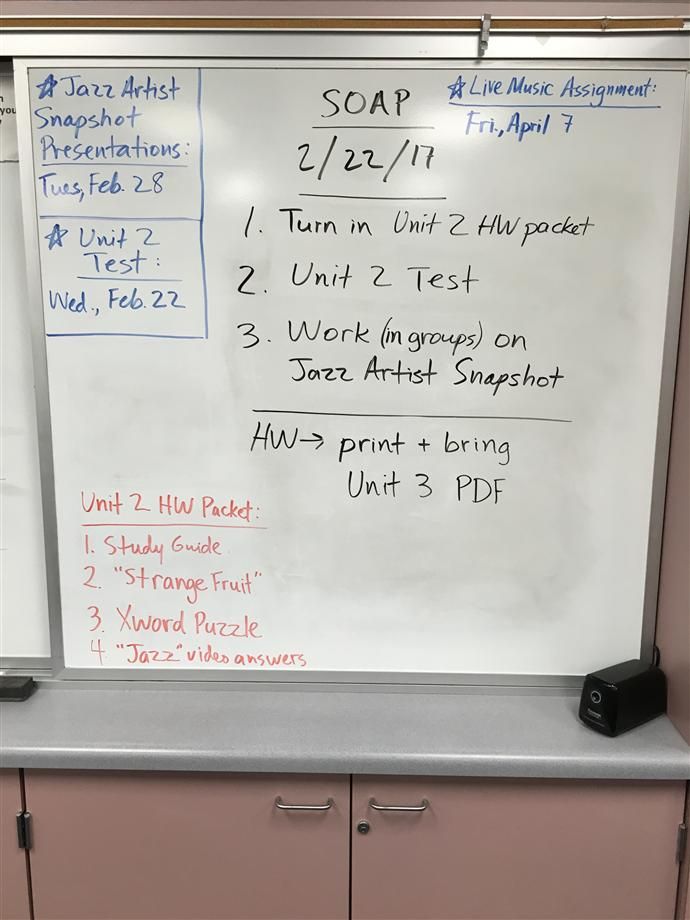 ☆ Jazz Artist
Snapshot
Presentations:
Tues, Feb. 28
☆ Unit 2
Test:
Wed., Feb. 22
SOAP
2/22/17
1. Turn in Unit 2 HW packet
2. Unit 2 Test
3. Work (in groups) on
Jazz Artist Snapshot
HW→ print + bring
Unit 3 PDF
☆ Live Music Assignment:
Fri., April 7
Unit 2 HW Packet:
1. Study Guide
2. "Strange Fruit"
3. Xword Puzzle
4. "Jazz" video answers